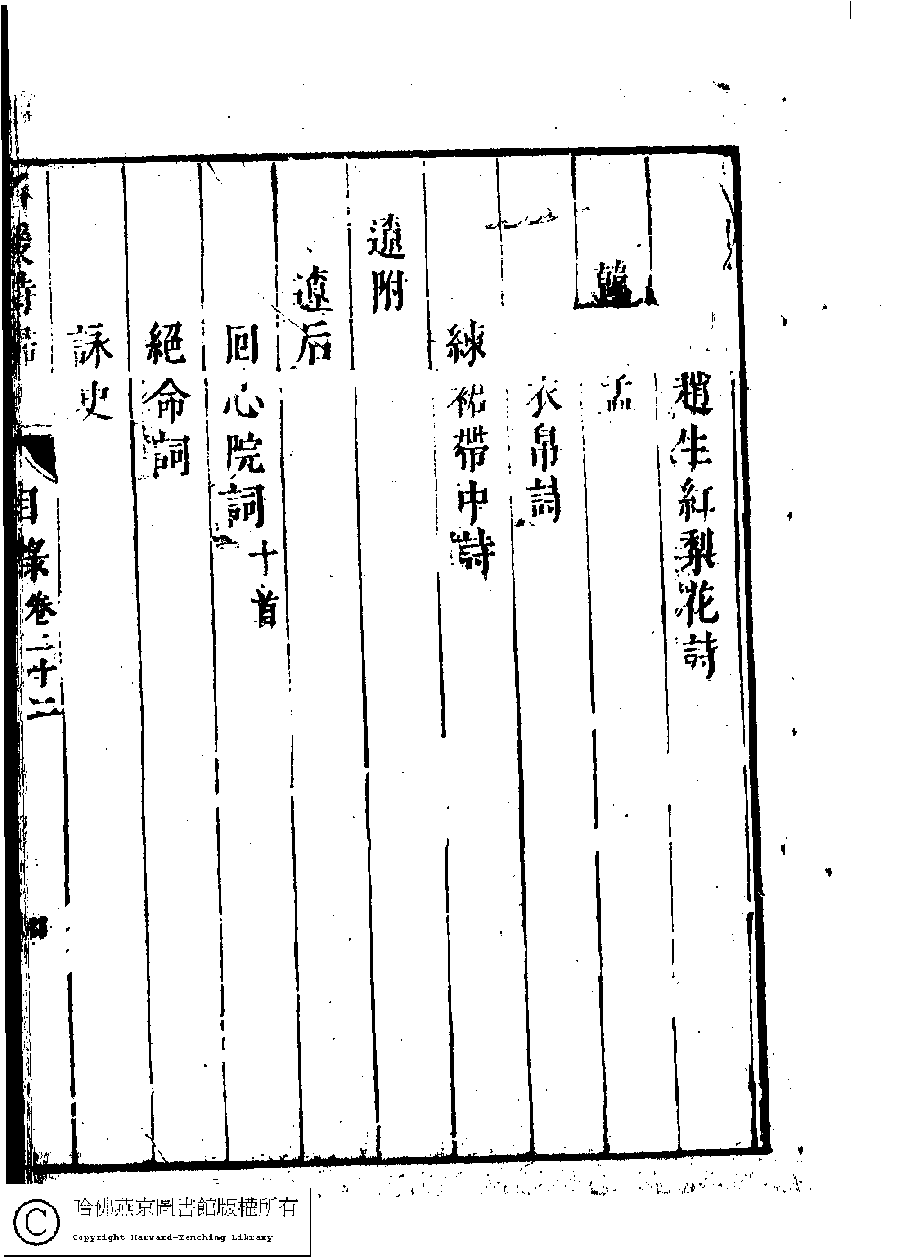 趙生紅梨花詩
韓
孟
衣帛詩
練裙帶中詩
遼附
遼后
回心院詞十首
絕命詞
詠史
名媛詩歸
目錄卷二十二
四
哈佛燕京圖書館版權所有
Copyright Harvard-Yenching Library